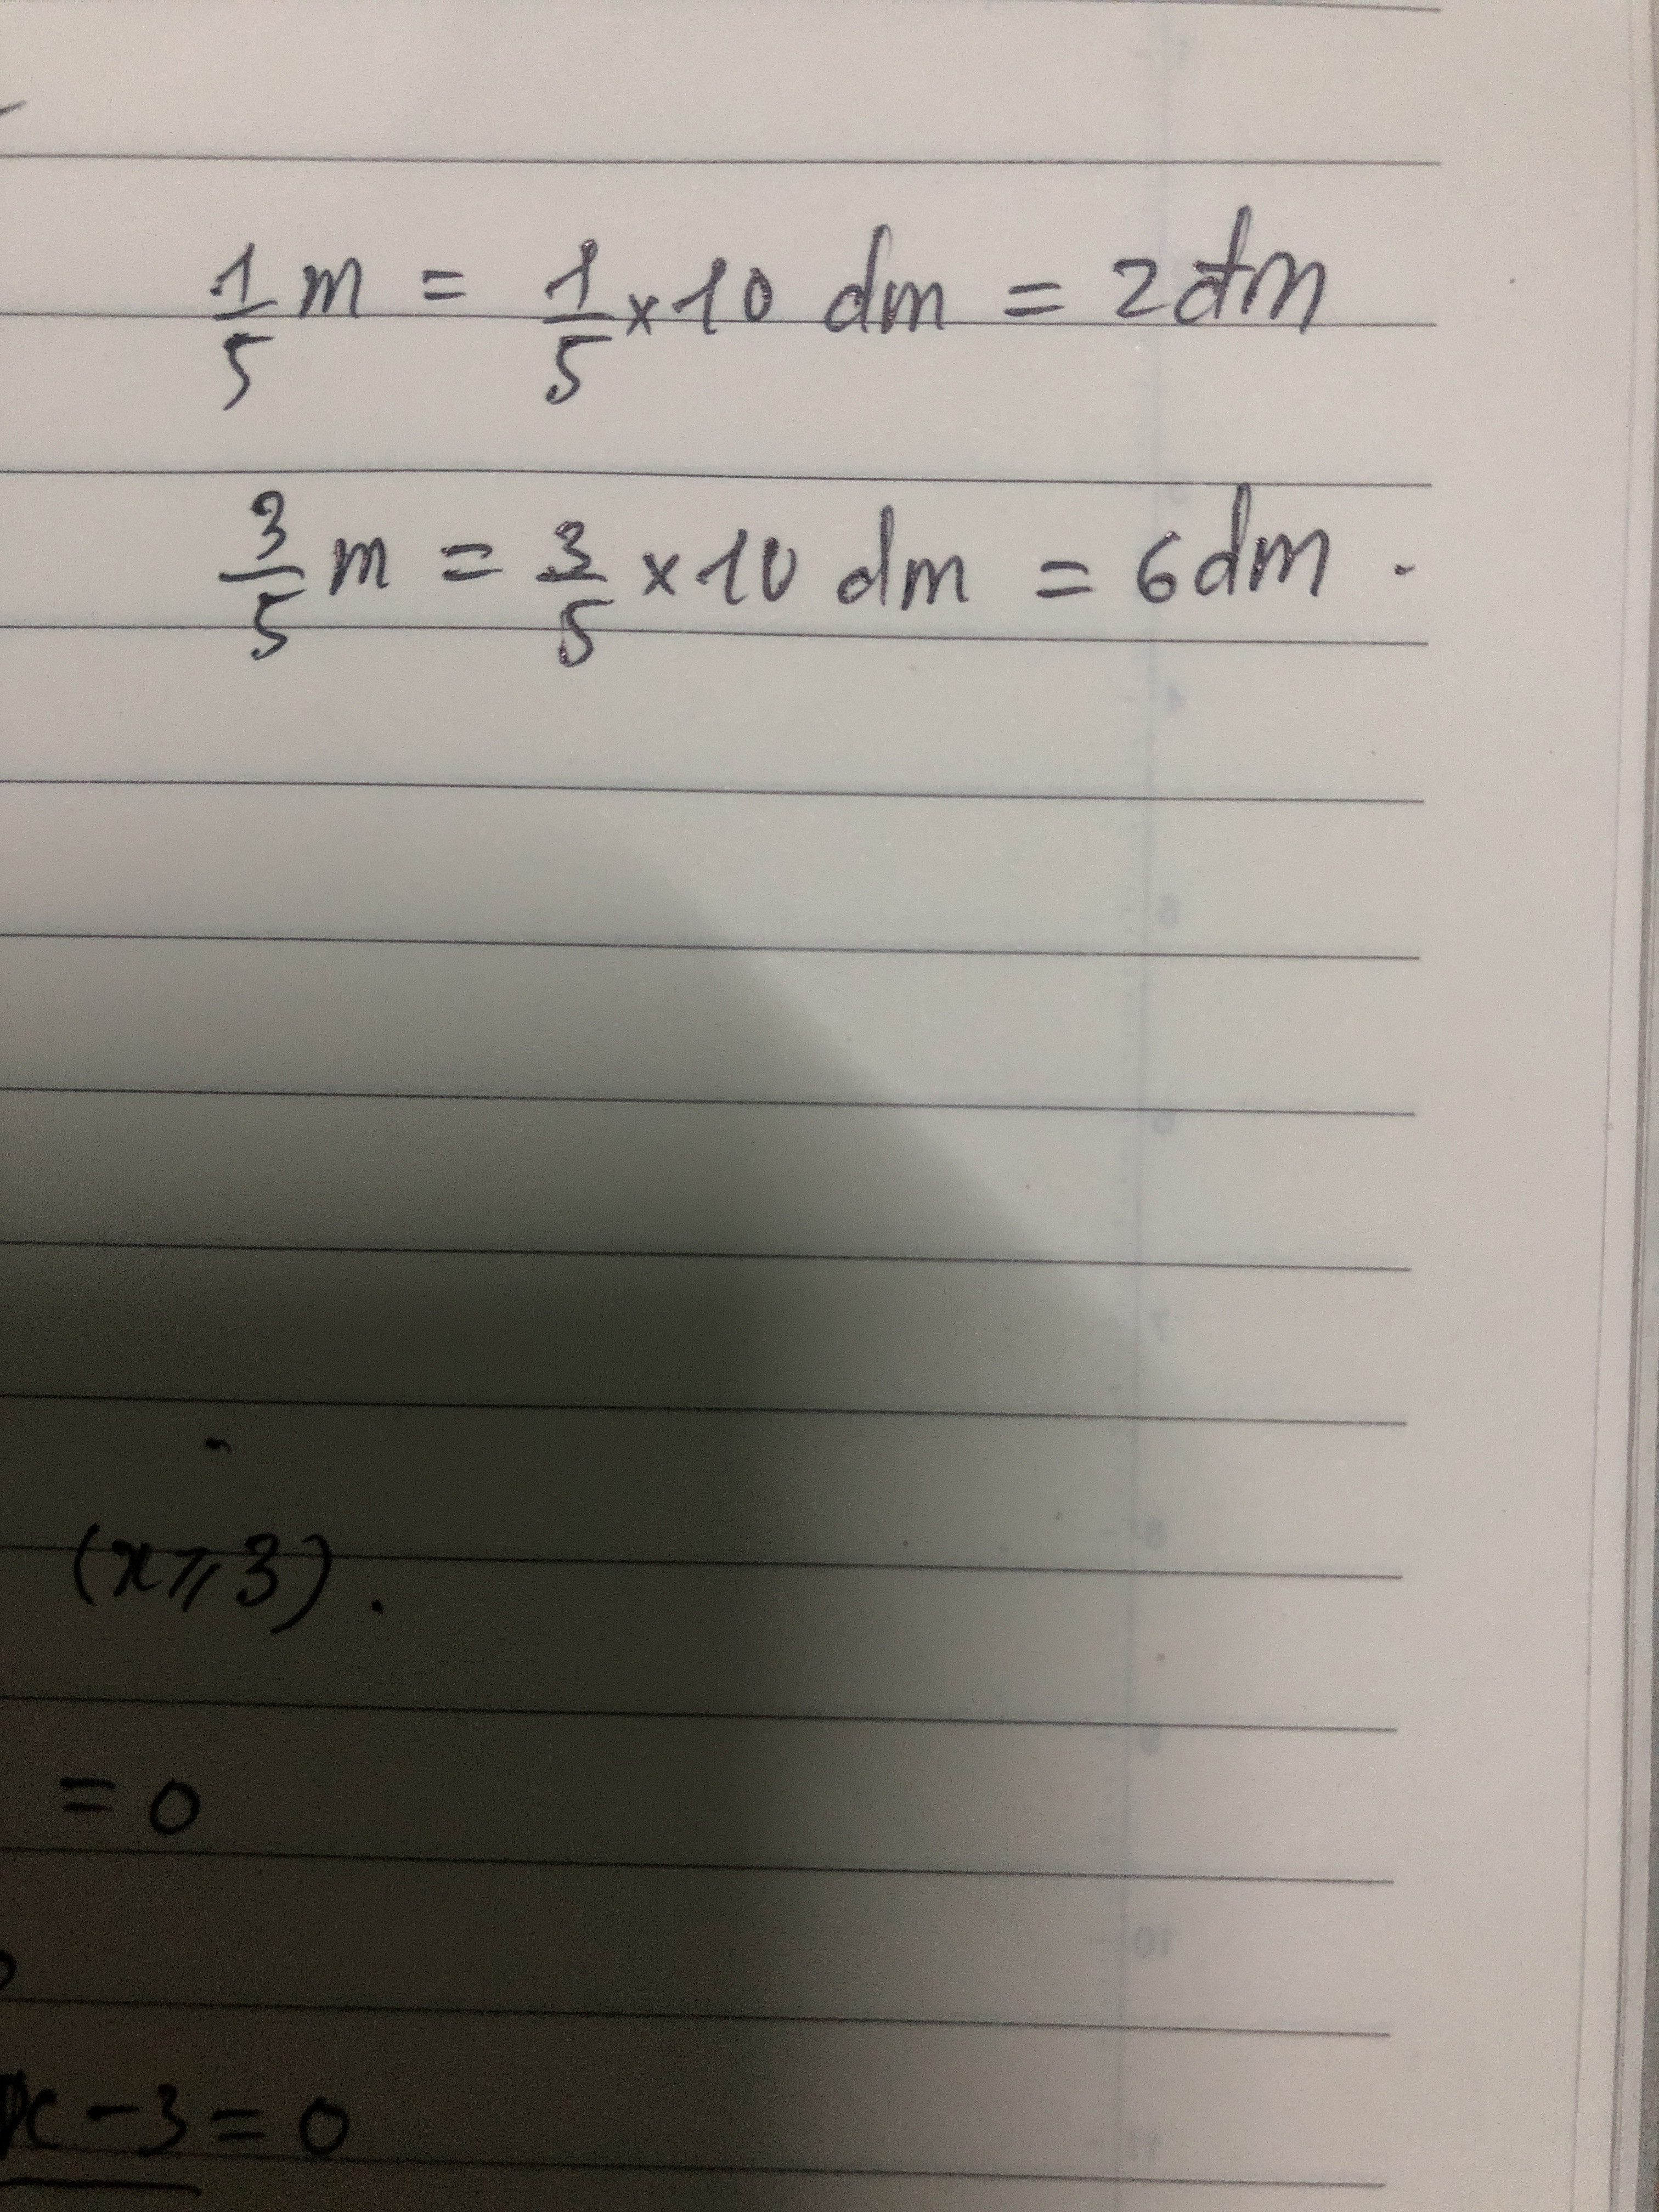 1/5 m = 1/5 × 10 dm = 2dm
3/5 m = 3/5 × 10 dm = 6dm.
(x ⩾ 3).
= 0
x - 3 = 0